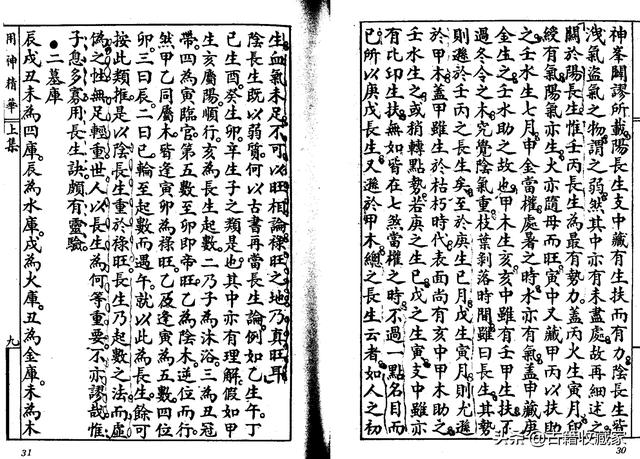 神峯闢謬所載陽長生支中藏有生扶而有力陰長生
洩氣盜氣之物謂之弱然其中亦有未盡處故再細述之
關於陽長生惟壬丙長生為最有勢力蓋丙火生寅月印
綬有氣陽氣亦生火亦隨母而旺寅中又藏甲丙以扶助
之壬水生七月申金當權處暑之時水亦有氣蓋申藏庚
金生之壬水助之故也甲木生亥亥中雖有壬甲生扶不
過冬令之木究覺陰氣重枝葉剝落時間雖曰長生其勢
則遜於壬丙之長生矣至於庚生巳月戊生寅月則尤遜
於甲木蓋甲雖生於枯朽時代表面尚有亥中甲木助之
壬水生之或稍轉點勢若庚之生巳戊之生寅支中雖亦
有比印生扶無如皆在七煞當權之時不過一點名目而
已所以庚戊長生又遜於甲木總之長生云者如人之初
30
生血氣未足不可以旺相論祿旺之地乃真旺耳
陰長生既以弱質何以古書再當長生論例如乙生午丁
己生酉癸生卯辛生子之類是也其中亦有理解假如甲
生亥屬陽順行亥為長生起數一乃子為沐浴三為丑冠
帶四為寅臨官第五數至卯即帝旺乙為陰木逆位而行
然甲乙同屬木皆逢寅卯為祿旺乙及逢寅為五數四位
卯三曰辰二曰巳輪至起數而遇午就以此為長生餘可
按此類推是以陰長生重於祿旺長生乃起數之法而虛
偽之性無足輕重世人以長生為何等重要不亦謬哉惟
子息多寡用長生訣頗有靈驗
●二墓庫
辰戌丑未為四庫辰為水庫戌為火庫丑為金庫未為木
用神精華 上集
九
31
头条@古籍收藏家